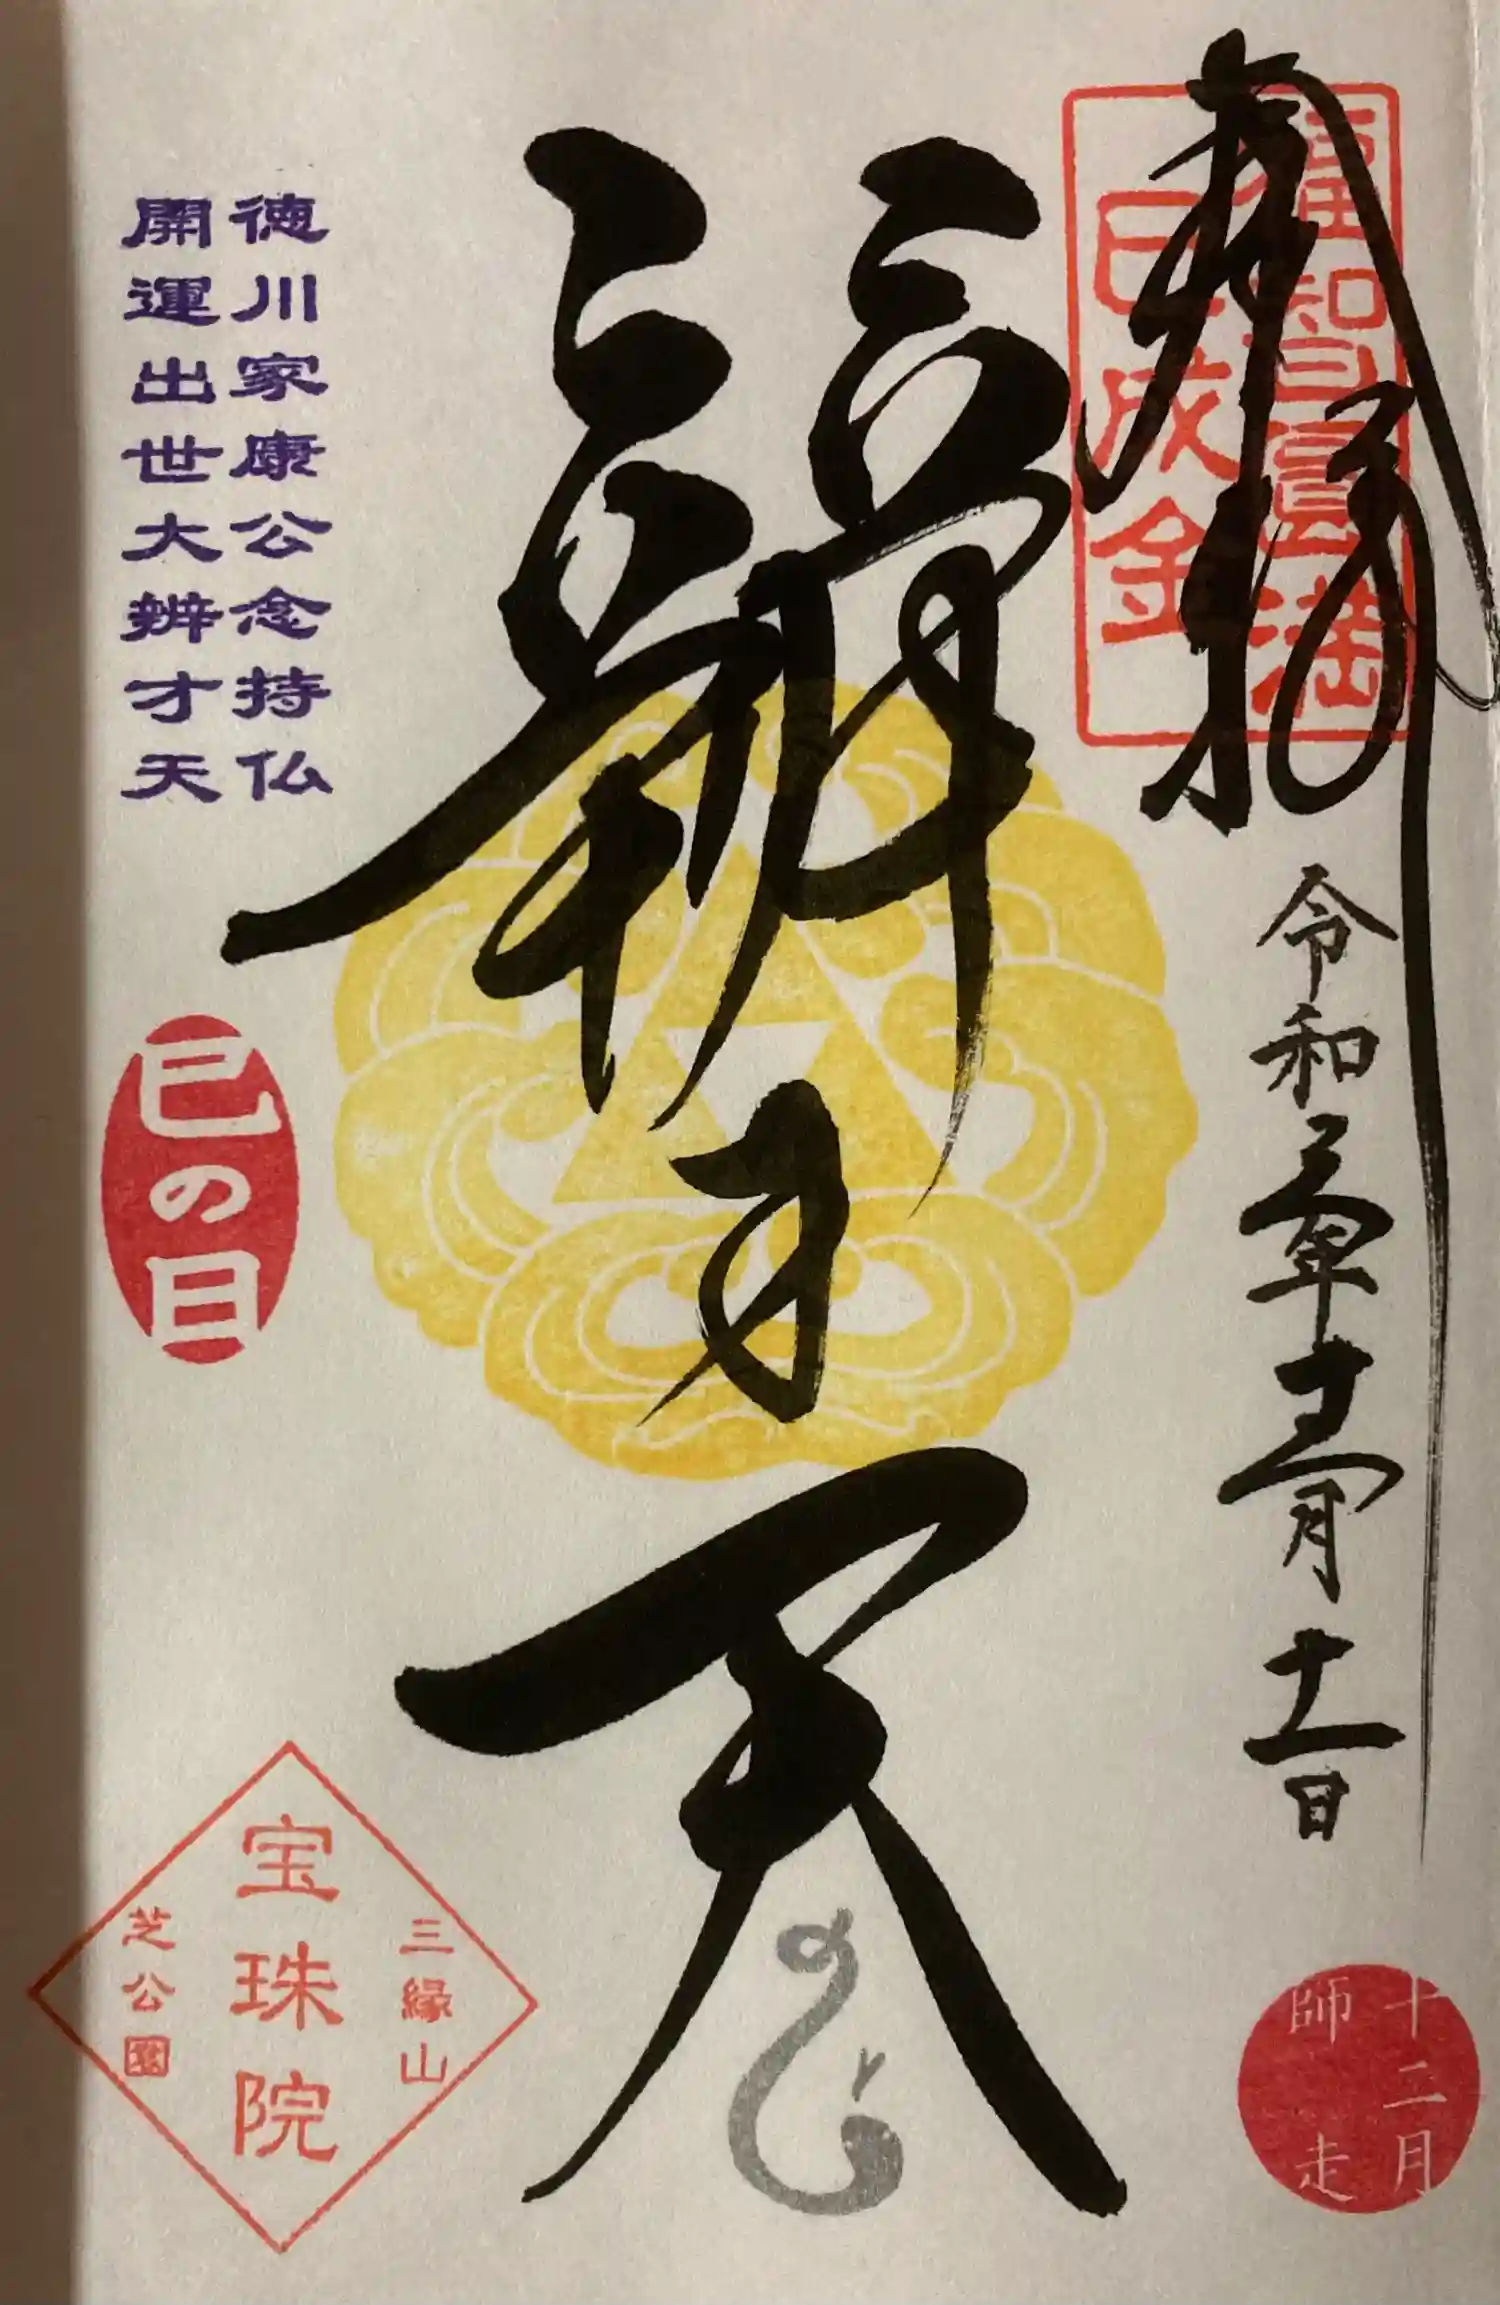 奉拝
福智圓満
巳成金
令和三年十二月十一日
十二月
師走
辨才天
徳川家康公念持仏
開運出世大辨才天
巳の日
三縁山
宝珠院
芝公園